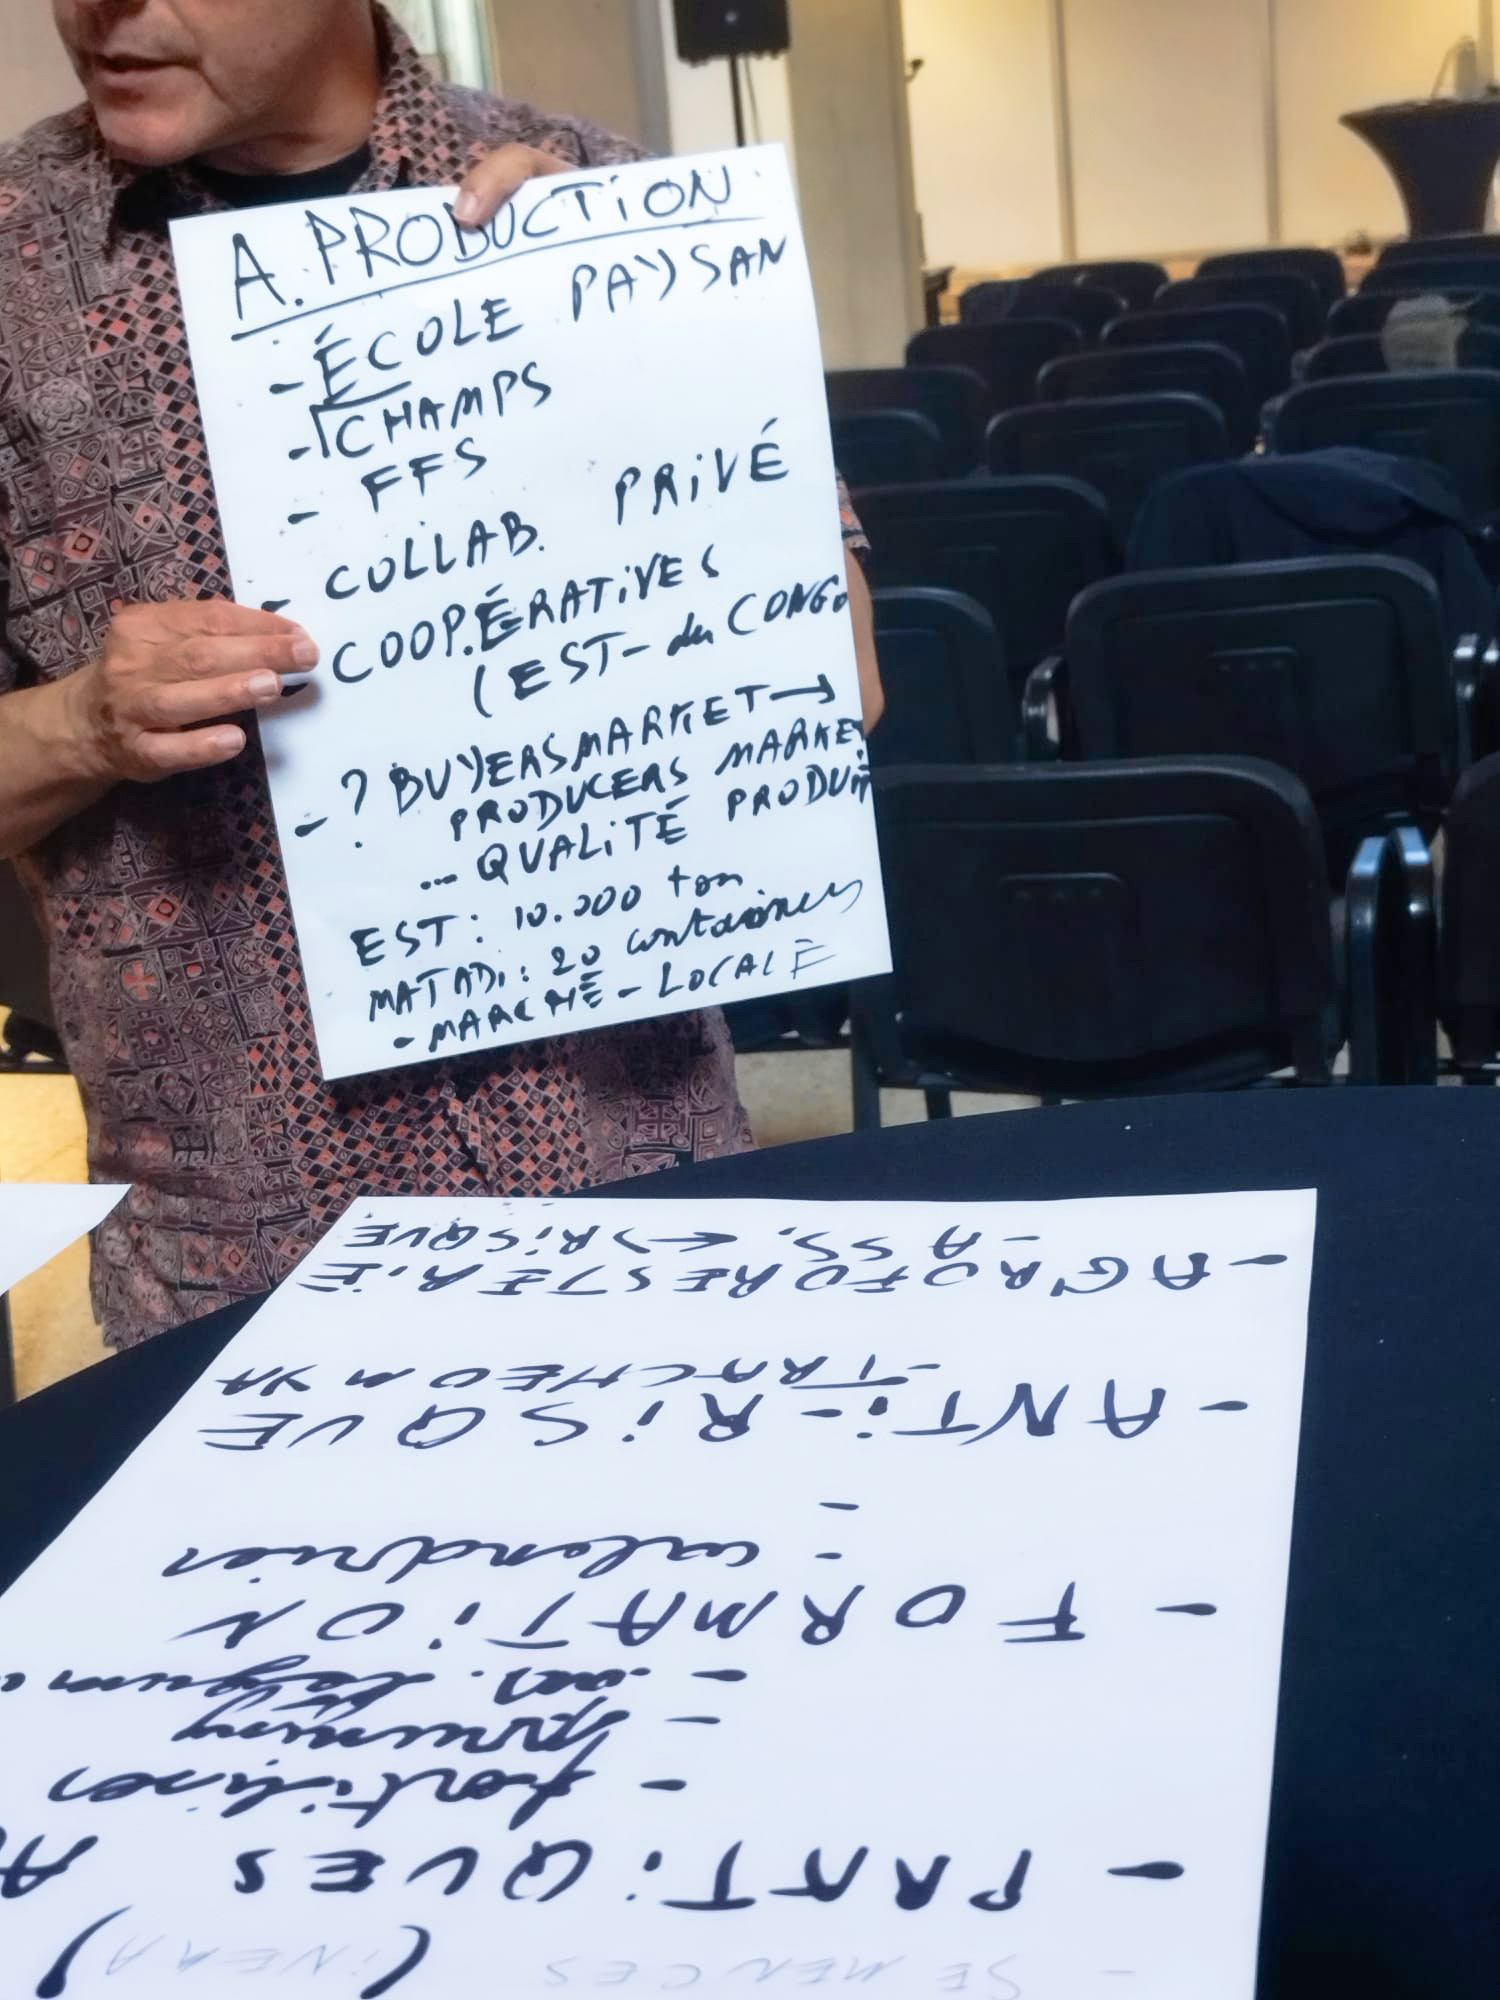 A. PRODUCTION
- ÉCOLE PAYSAN
- CHAMPS
- FFS
- COLLAB. PRIVÉ
- COOPÉRATIVES
(EST- du CONGO
- ? BUYERSMARKET →
PRODUCERS MARKET
... QUALITÉ PRODUIT
EST: 10.000 ton
MATADI: 20 containers
- MARCHÉ - LOCALE
- SEMENCES (INERA)
- PRATiQUES A
- fertiliser
- pruning
-
- FORMATiON
- calendrier
-
- ANTi-RiSQUE
- TRACHEOMYA
- AGROFORESTERiE
- ASS. <-> RiSQUE